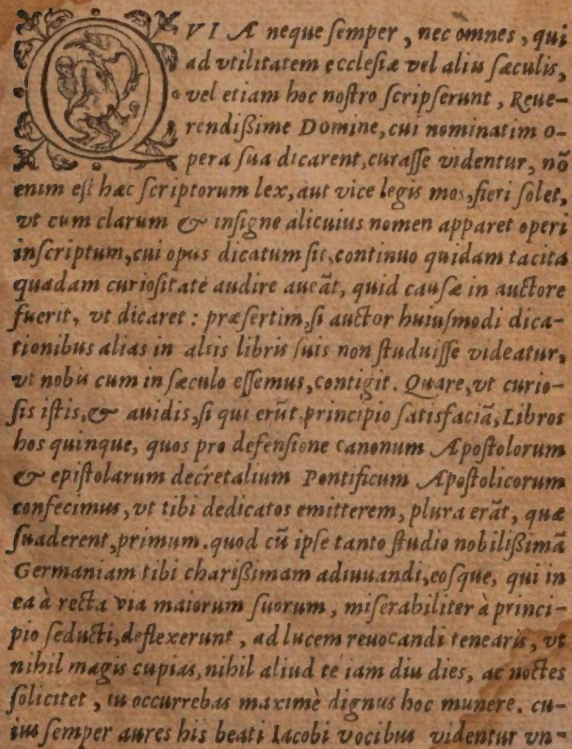 QVIA neque ſemper, nec omnes, qui
ad vtilitatem eccleſiæ vel aliis ſæculis,
vel etiam hoc noſtro ſcripſerunt, Reue-
rendißime Domine, cui nominatim o-
pera ſua dicarent, curaſſe videntur, nõ
enim eſt hæc ſcriptorum lex, aut vice legis mos, fieri ſolet,
vt cum clarum & inſigne alicuius nomen apparet operi
inſcriptum, cui opus dicatum ſit, continuo quidam tacita
quadam curioſitate audire aueãt, quid cauſæ in auctore
fuerit, vt dicaret: præſertim, ſi auctor huiuſmodi dica-
tionibus alias in aliis libris ſuis non ſtuduiſſe videatur,
vt nobis cum in ſæculo eſſemus, contigit. Quare, vt curio-
ſis iſtis, & auidis, ſi qui erũt, principio ſatisfaciã, Libros
hos quinque, quos pro defenſione canonum Apoſtolorum
& epiſtolarum decretalium Pontificum Apoſtolicorum
confecimus, vt tibi dedicatos emitterem, plura erãt, quæ
ſuaderent, primum. quod cũ ipſe tanto ſtudio nobilißimã
Germaniam tibi charißimam adiuuandi, eoſque, qui in
ea à recta via maiorum ſuorum, miſerabiliter à princi-
pio ſeducti, deflexerunt, ad lucem reuocandi tenearis, vt
nihil magis cupias, nihil aliud te iam diu dies, ac noctes
ſolicitet, tu occurrebas maximè dignus hoc munere. cu-
ius ſemper aures his beati Iacobi vocibus videntur vn-